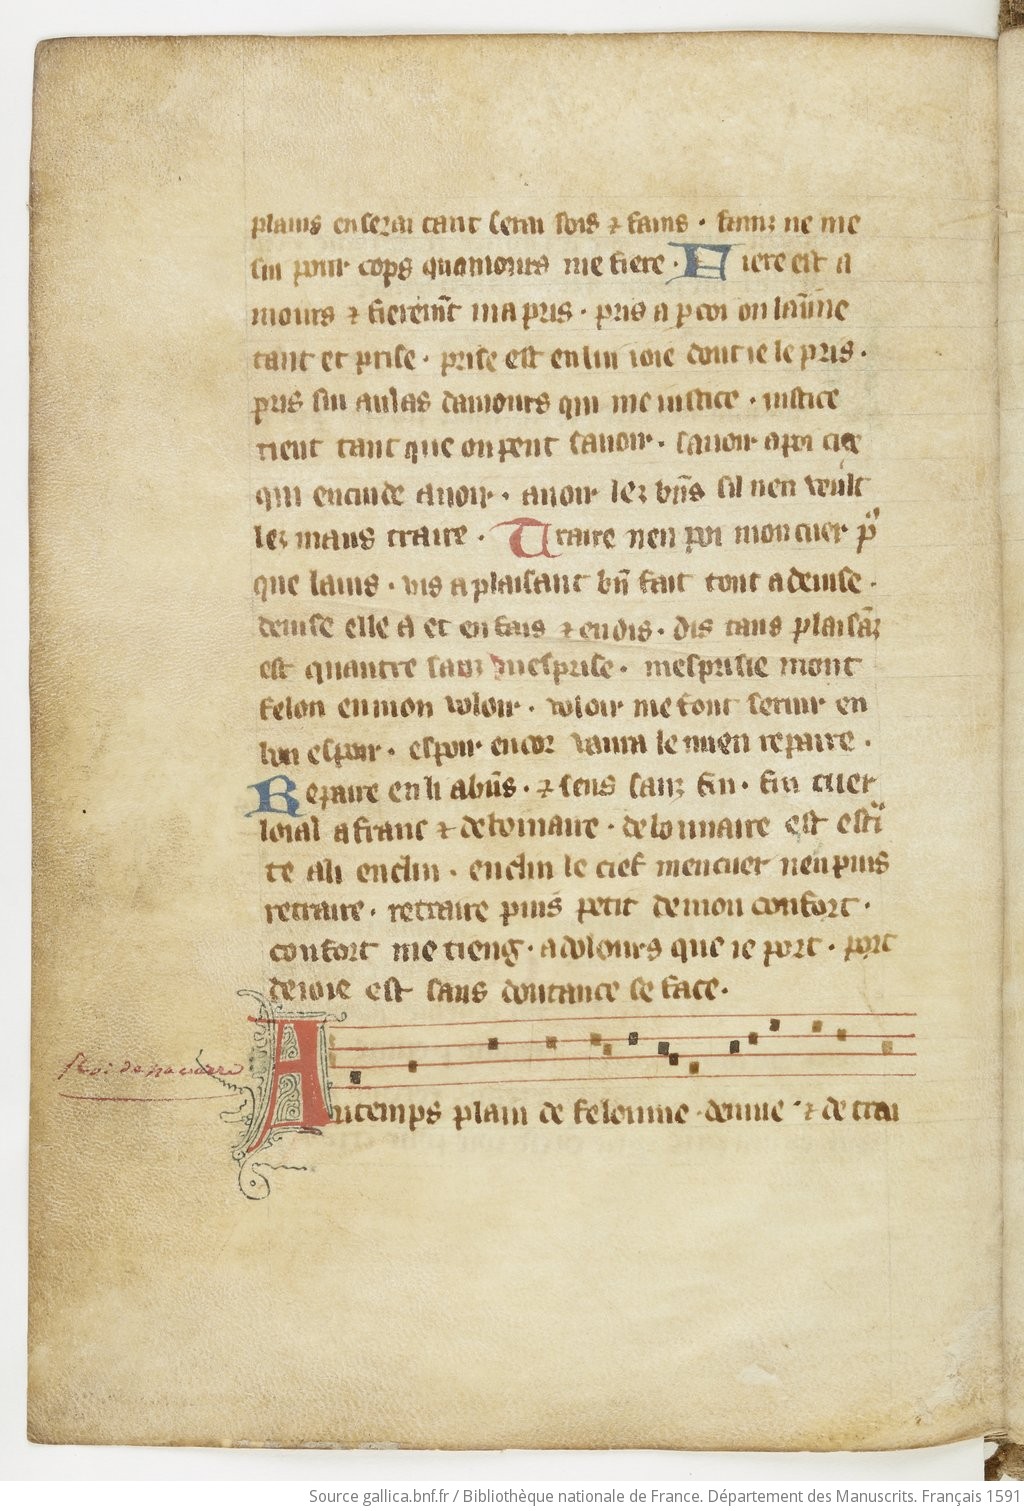 plains en serai tant serai sois ⁊ fains · fainz ne me
sui pour cops quamours me fiere · Fiere est a
mours ⁊ fierem̃t ma pris · pris a p coi on laĩme
tant et prise · prise est en lui ioie dont ie le pris ·
pris sui au las damours qui me iustice · iustice
tient tant que on peut sauoir · sauoir a poi
qui cuide auoir · auoir lez bñs sil nen veult
lez maus traire · Traire nen poi mon cuer p̃
que lains · vis a plaisant bñ fait tout a deuise ·
deuise elle a et en fais ⁊ en dis · dis tans plaisãz
est quantre sanz mesprise · mesprisie mont
felon en mon voloir · voloir me font seruir en
bon espoir · espoir encor vaura le mien repaire ·
Repaire en li a bñs · ⁊ sens sanz fin · fin cuer
loial a franc ⁊ debonnaire · debonnaire est
te a li enclin · enclin le cief men cuer nen puis
retraire · retraire puis petit de mon confort ·
confort me tieng · a dolours que ie port · port
de ioie est sans doutance se face ·
Roi de navarre
Autemps plain de felonnie · denuie · ⁊ de trai
Source gallica.bnf.fr / Bibliothèque nationale de France. Département des Manuscrits. Français 1591